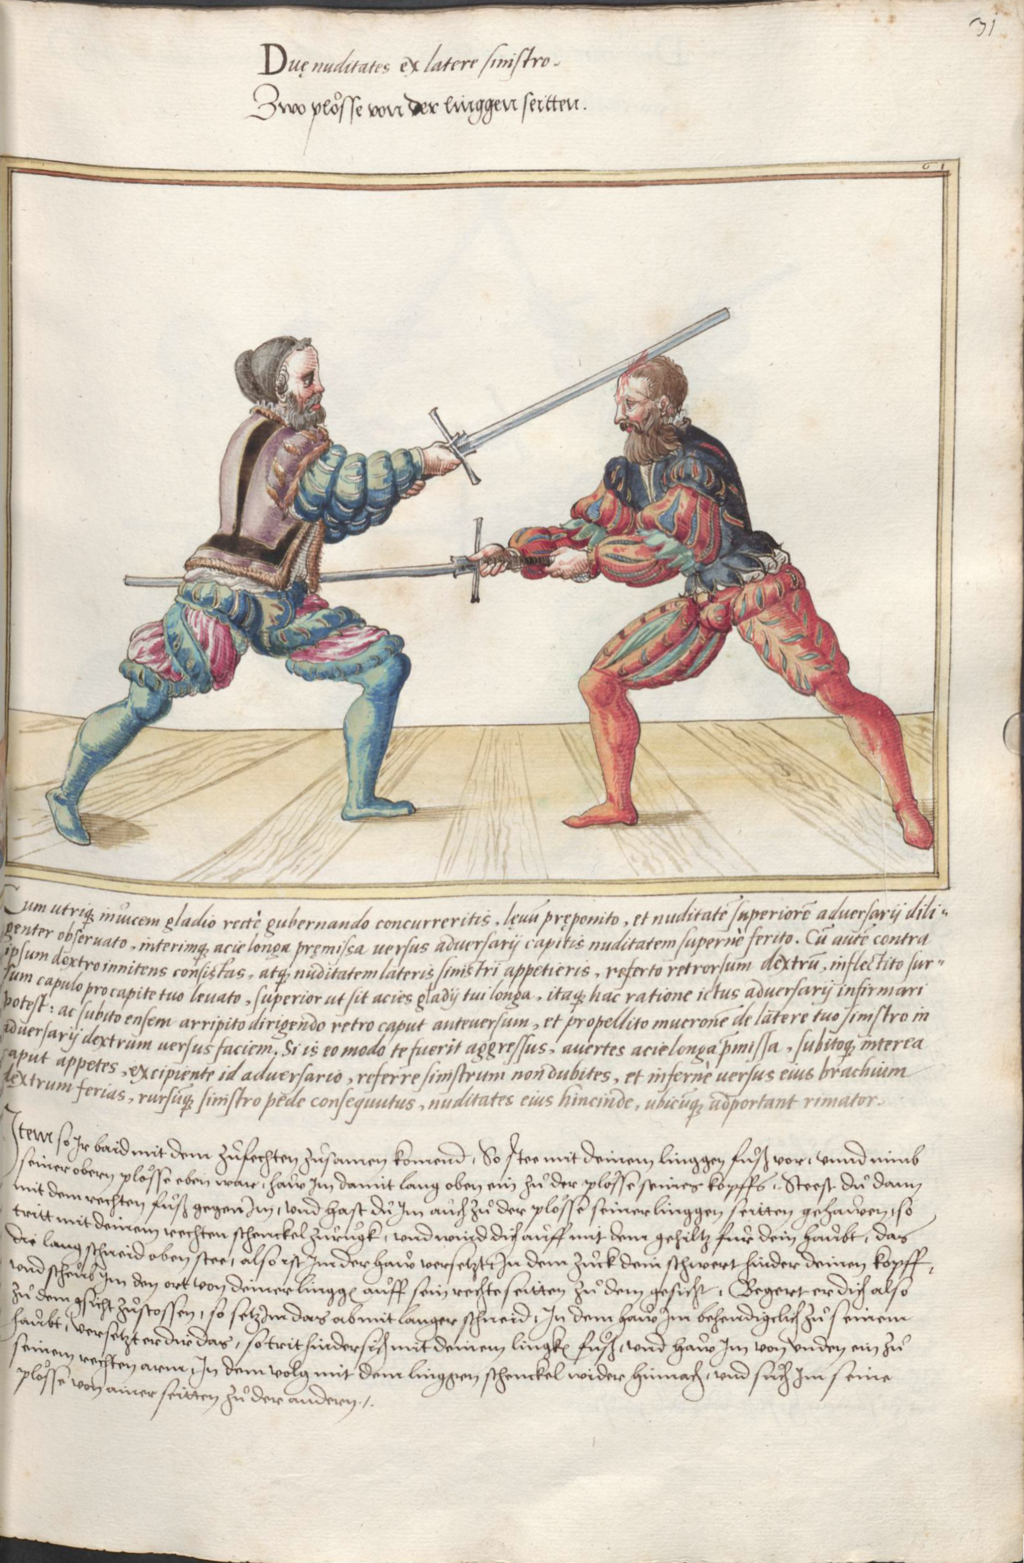 31
Duę nuditates ex latere sinistro.
Zwo plösse von der linggen seitten.
61
Cum utriq; inuicem gladio rectè gubernando concurreritis, leuũ pręponito, et nuditatẽ superiorẽ aduersarij dili-
genter obseruato, interimq; acie longa pręmissa uersus aduersarij capitis nuditatem supernè ferito. Cũ autẽ contra
ipsum dextro innitens consistas, atq; nuditatem lateris sinistri appetieris, referto retrorsum dextrũ, inflectito sur-
sum capulo pro capite tuo leuato, superior ut sit acies gladij tui longa, itaq; hac ratione ictus aduersarij infirmari
potest: ac subito ensem arripito dirigendo retro caput anteuersum, et propellito mucrone de latere tuo sinistro in
aduersarij dextrum uersus faciem. Si is eo modo te fuerit aggressus, auertes acie longa p̃missa, subitoq; interea
caput appetes, excipiente id aduersario, referre sinistrum non dubites, et infernè uersus eius brachium
dextrum ferias, rursusq; sinistro pede consequutus, nuditates eius hincinde, ubicũq; adportant rimator.
Item so Ir baid mit dem zůfechten zůsamen komend, So stee mit deinem linggen fůß vor, unnd nimb
seiner obern plösse eben war, haw Im damit lang oben ein zů der plösse seines kopffs, Steest dů dann
mit dem rechten fůß gegen Im, unnd hast dů Im auch zů der plösse seiner linggen seitten gehawen, so
tritt mit deinem rechten schenckel zůrugk, unnd wind dich auff mit dem gehiltz für dein haubt, das
die lang schneid oben stee, also ist Im der haw versetzt, In dem zuck dein schwert hinder deinen kopff,
unnd scheub Im den ort von deiner lingg auff sein rechte seitten zů dem gesicht, Begert er dich also
zů dem gsicht zůstossen, so setz Im das ab mit langer schneid, In dem haw Im behendigclich zů seinem
haubt, versetzt er dir das, so trit hindersich mit deinem lingk fůß, unnd haw Im von unden ein zů
seinem rechten arm, In dem volg mit dem linggen schenckel wider hinnach, und sůch Im seine
plösse von ainer seitten zů der andern.